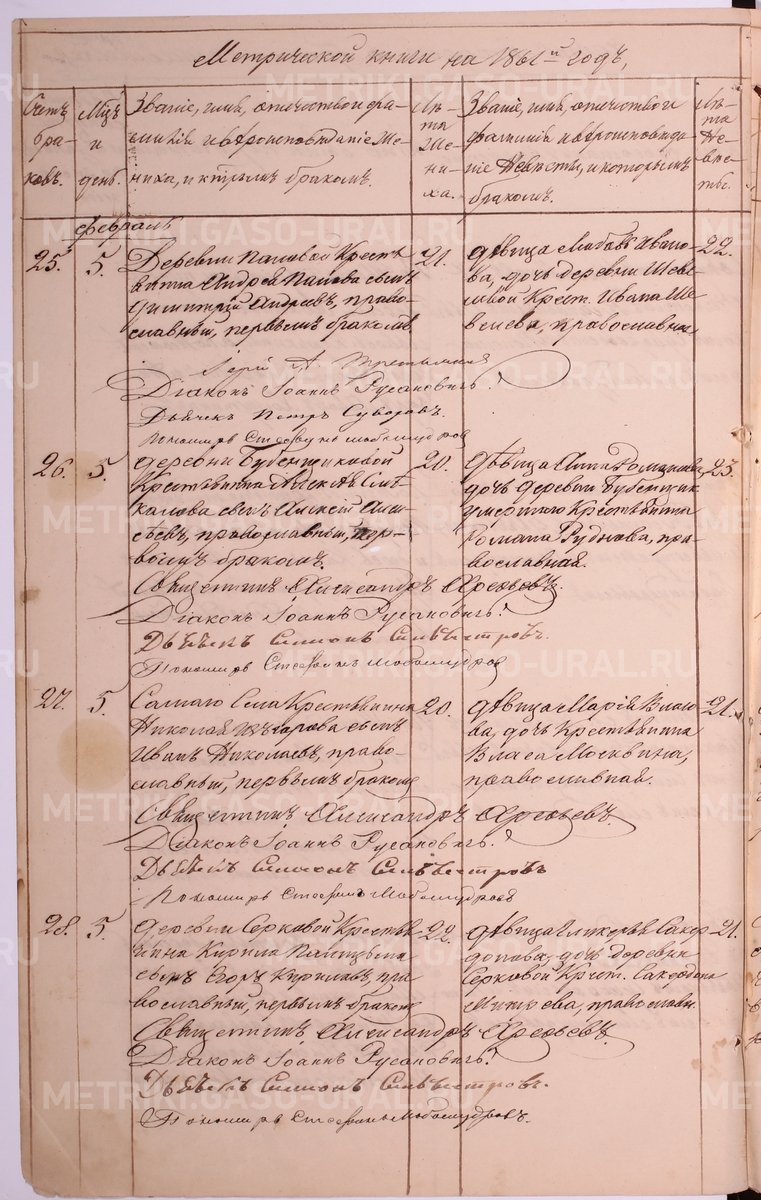 Метрической книги на 1861й годъ,
Счетъ бра- ковъ.
Мцъ и день.
Званіе, имя, отечество и фа-
милія и вѣроисповѣданіе Же-
ниха, и которымъ бракомъ.
Лѣ-
та
Же-
ни-
ха.
Званіе, имя, отечество и
фамилія и вѣроисповѣда-
ніе Невѣсты, и которымъ
бракомъ.
Лѣ-
та
Не-
вѣс-
ты.
февраль
25. 5. Деревни Пановой Кресть-
янина Андрея Панова сынъ
Димитрій Андреевъ, право-
славный, первымъ бракомъ.
21.
дѣвица Любовь Ивано-
ва, дочь деревни Шеве-
левой Крест. Ивана Ше-
велева, православная
22.
Іерей А.
Діаконъ Іоаннъ Русановичъ.
Дьячекъ Петръ Суворовъ.
Пономарь Стефанъ Любомудровъ
26. 5. деревни Бубенщиковой
Крестьянина
сынъ Алексѣй Алек-
сѣевъ, православный, пер-
вымъ бракомъ.
20.
дѣвица Анна Романова,
дочь деревни Бубенщик.
умершаго Крестьянина
Романа Руднова, пра-
вославная.
23.
Священникъ Александръ Арефьевъ.
Діаконъ Іоаннъ Русановичъ.
Дьячекъ Симеонъ Сильвестровъ.
Пономарь Стефанъ Любомудровъ
27. 5. Самаго Села Крестьянина
Николая сынъ
Иванъ Николаевъ, право-
славный, первымъ бракомъ
20.
дѣвица Марія Власо-
ва, дочь Крестьянина
Власа Москвина,
православная.
21.
Священникъ Александръ Арефьевъ.
Діаконъ Іоаннъ Русановичъ.
Дьячекъ Симеонъ Сильвестровъ
Пономарь Стефанъ Любомудровъ
28. 5. деревни Серковой Кресть-
янина Кирила
сынъ Егоръ Кириловъ, пра-
вославный, первымъ бракомъ
22.
дѣвица Гликерья Сакер-
донова, дочь деревни
Серковой Крест. Сакердона
Минѣева, православн.
21.
Священникъ Александръ Арефьевъ.
Діаконъ Іоаннъ Русановичъ.
Дьячекъ Симеонъ Сильвестровъ.
Пономарь Стефанъ Любомудровъ.
METRIKI.GASO-URAL.RU